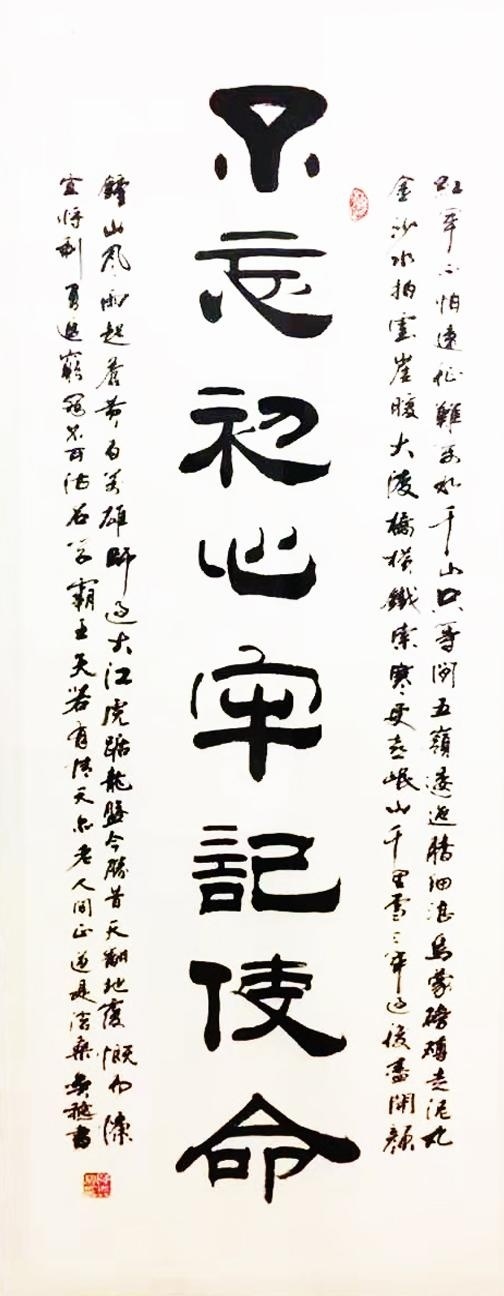 红軍不怕遠征難萬水千山只等閑五嶺逶迤騰细浪烏蒙磅礴走泥丸
金沙水拍雲崖暖大渡橋横鐵索寒更喜岷山千里雪三軍過後盡開顏
不忘初心牢記使命
鐘山風雨起蒼黄百萬雄師過大江虎踞龍盤今勝昔天翻地覆慨而慷
宜將剩勇追窮寇不可沽名學霸王天若有情天亦老人間正道是滄桑書